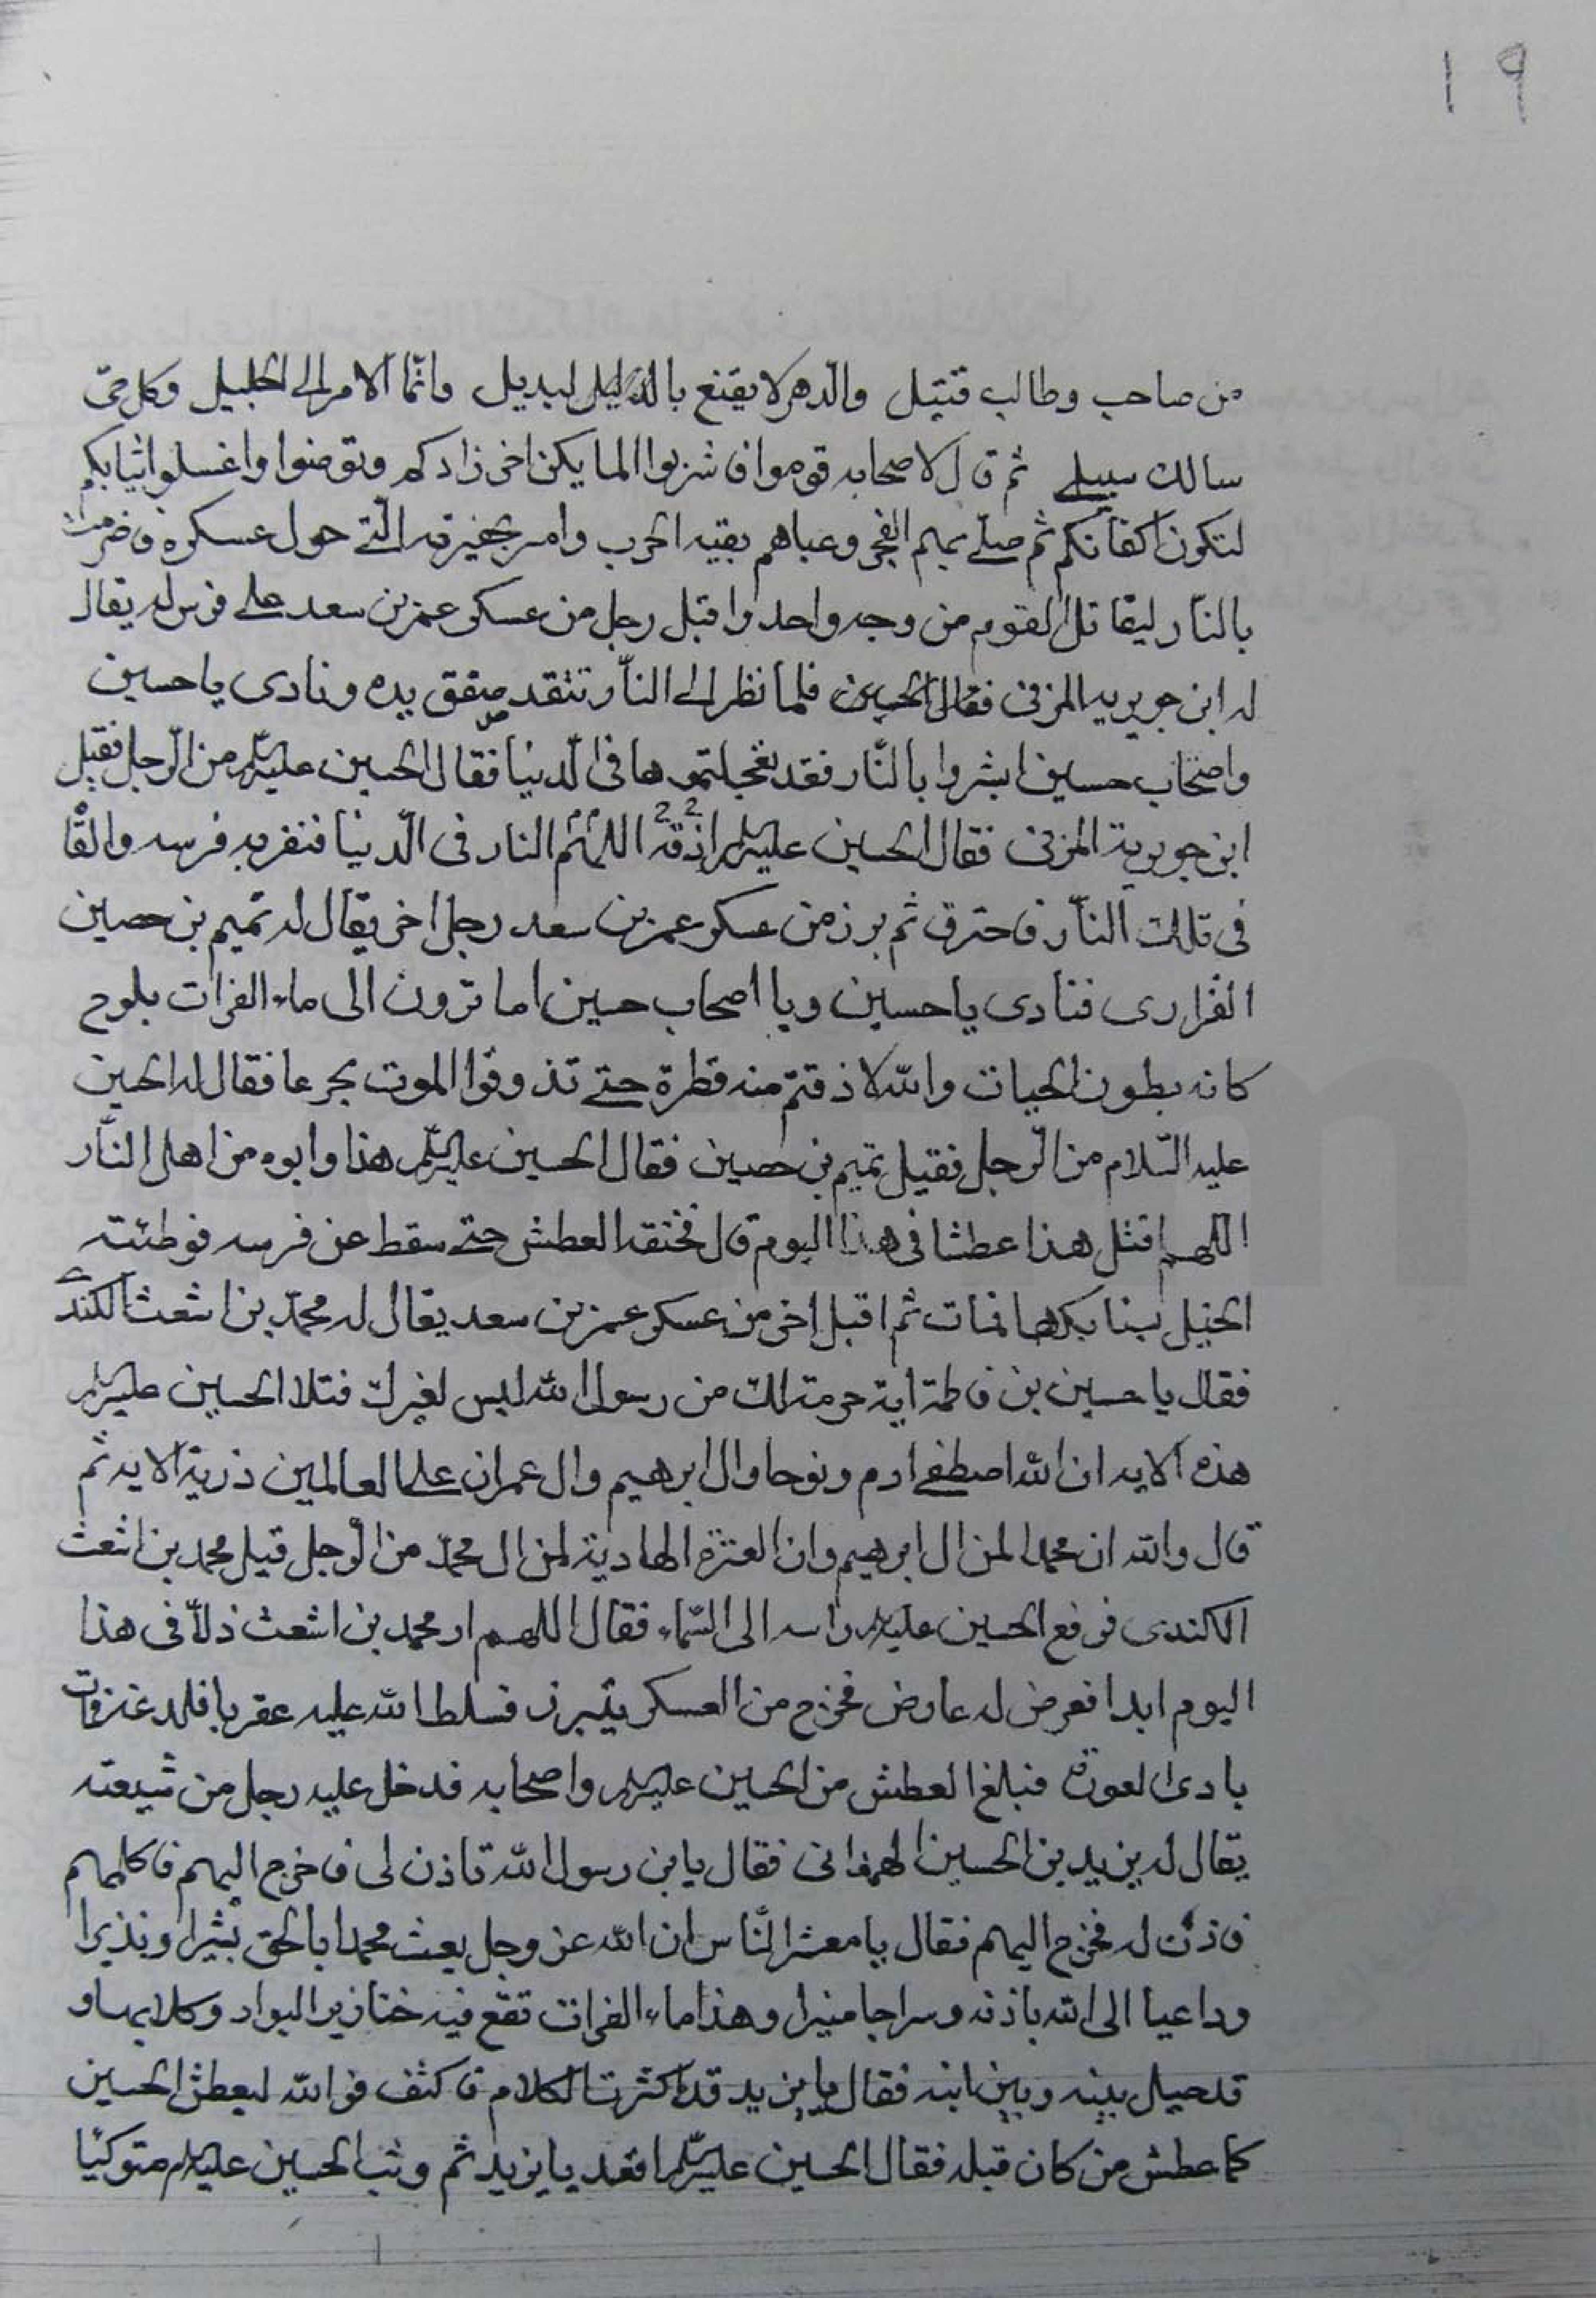 ١٩
من صاحب وطالب قتيل والدّهر لا يقنع بالبديل وانّما الامر الى الجليل وكل حىّ
سالك سبيلى ثم قال لاصحابه قوموا فاشربوا الما يكن اخر زادكم وتوضئوا واغسلوا ثيابكم
لتكون اكفانكم ثم صلّى بهم الفجر وعباهم تعبيه الحرب وامر بحفيرته الّتى حول عسكره فاضرمت
بالنّار ليقاتل القوم من وجه واحد واقبل رجل من عسكر عمر بن سعد على فرس له يقال
له ابن جويريه المزنى فلما نظر الى النّار تتقد صفق بيده ونادى يا حسين
واصحاب حسين ابشروا بالنّار فقد تعجلتموها فى الدّنيا فقال الحسين عليه السلم من الرّجل فقيل
ابن جويرية المزنى فقال الحسين عليه السلم اللهم اذقه النار فى الدّنيا فنفر به فرسه والقا
فى تلك النّار فاحترق ثم برز من عسكر عمر بن سعد رجل اخر يقال له تميم بن حصين
الفزارى فنادى يا حسين ويا اصحاب حسين اما ترون الى ماء الفرات يلوح
كانه بطون الحيات والله لا ذقتم منه قطرة حتى تذوقوا الموت جرعا فقال له الحسين
عليه السّلام من الرّجل فقيل تميم بن حصين فقال الحسين عليه السلم هذا وابوه من اهل النّار
اللهم اقتل هذا عطشا فى هذا اليوم قال فخنقه العطش حتى سقط عن فرسه فوطئته
الخيل بسنابكها فمات ثم اقبل اخر من عسكر عمر بن سعد يقال له محمّد بن اشعث الكندى
فقال يا حسين بن فاطمة اية حرمة لك من رسول الله ليس لغيرك فتلا الحسين عليه السلم
هذه الايه ان الله اصطفى ادم ونوحا وال ابرهيم وال عمران على العالمين ذرية الايه ثم
قال والله ان محمدا لمن ال ابرهيم وان العترة الهادية لمن ال محمّد من الرّجل قيل محمد بن اشعث
الكندى فرفع الحسين عليه السلم راسه الى السّماء فقال اللهم ار محمد بن اشعث ذلّا فى هذا
اليوم ابدا فعرض له عارض فخرج من العسكر يتبرز فسلط الله عليه عقربا فلدغته فمات
بادى العورة فبلغ العطش من الحسين عليه السلم واصحابه فدخل عليه رجل من شيعته
يقال له يزيد بن الحسين الهمدانى فقال يابن رسول الله تاذن لى فاخرج اليهم فاكلمهم
فاذن له فخرج اليهم فقال يا معشر النّاس ان الله عز وجل بعث محمدا بالحق بشيرا ونذيرا
وداعيا الى الله باذنه وسراجا منيرا وهذا ماء الفرات تقع فيه خنازير البواد وكلابها و
قد حيل بينه وبين ابنه فقال يا يزيد قد اكثرت الكلام فاكفف فو الله ليعطش الحسين
كما عطش من كان قبله فقال الحسين عليه السلم اقعد يا يزيد ثم وثب الحسين عليه السلم متوكيّا